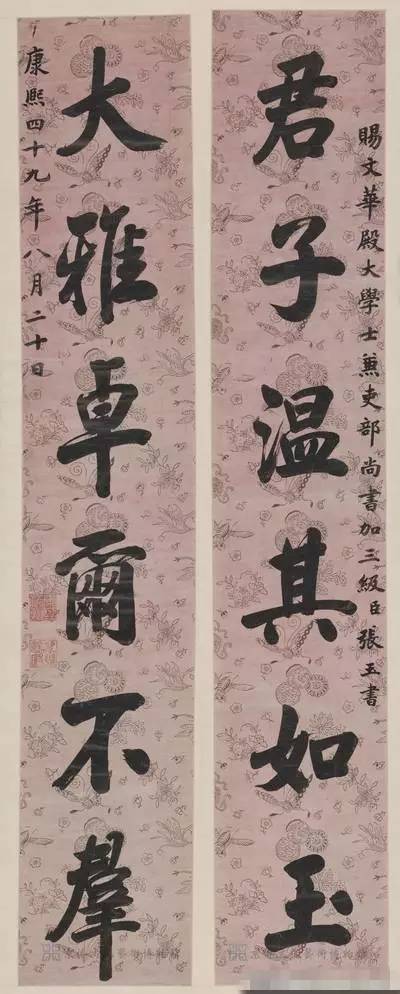 賜文華殿大學士兼吏部尚書加三級臣張玉書
君子溫其如玉
大雅卓爾不羣
康熙四十九年八月二十日